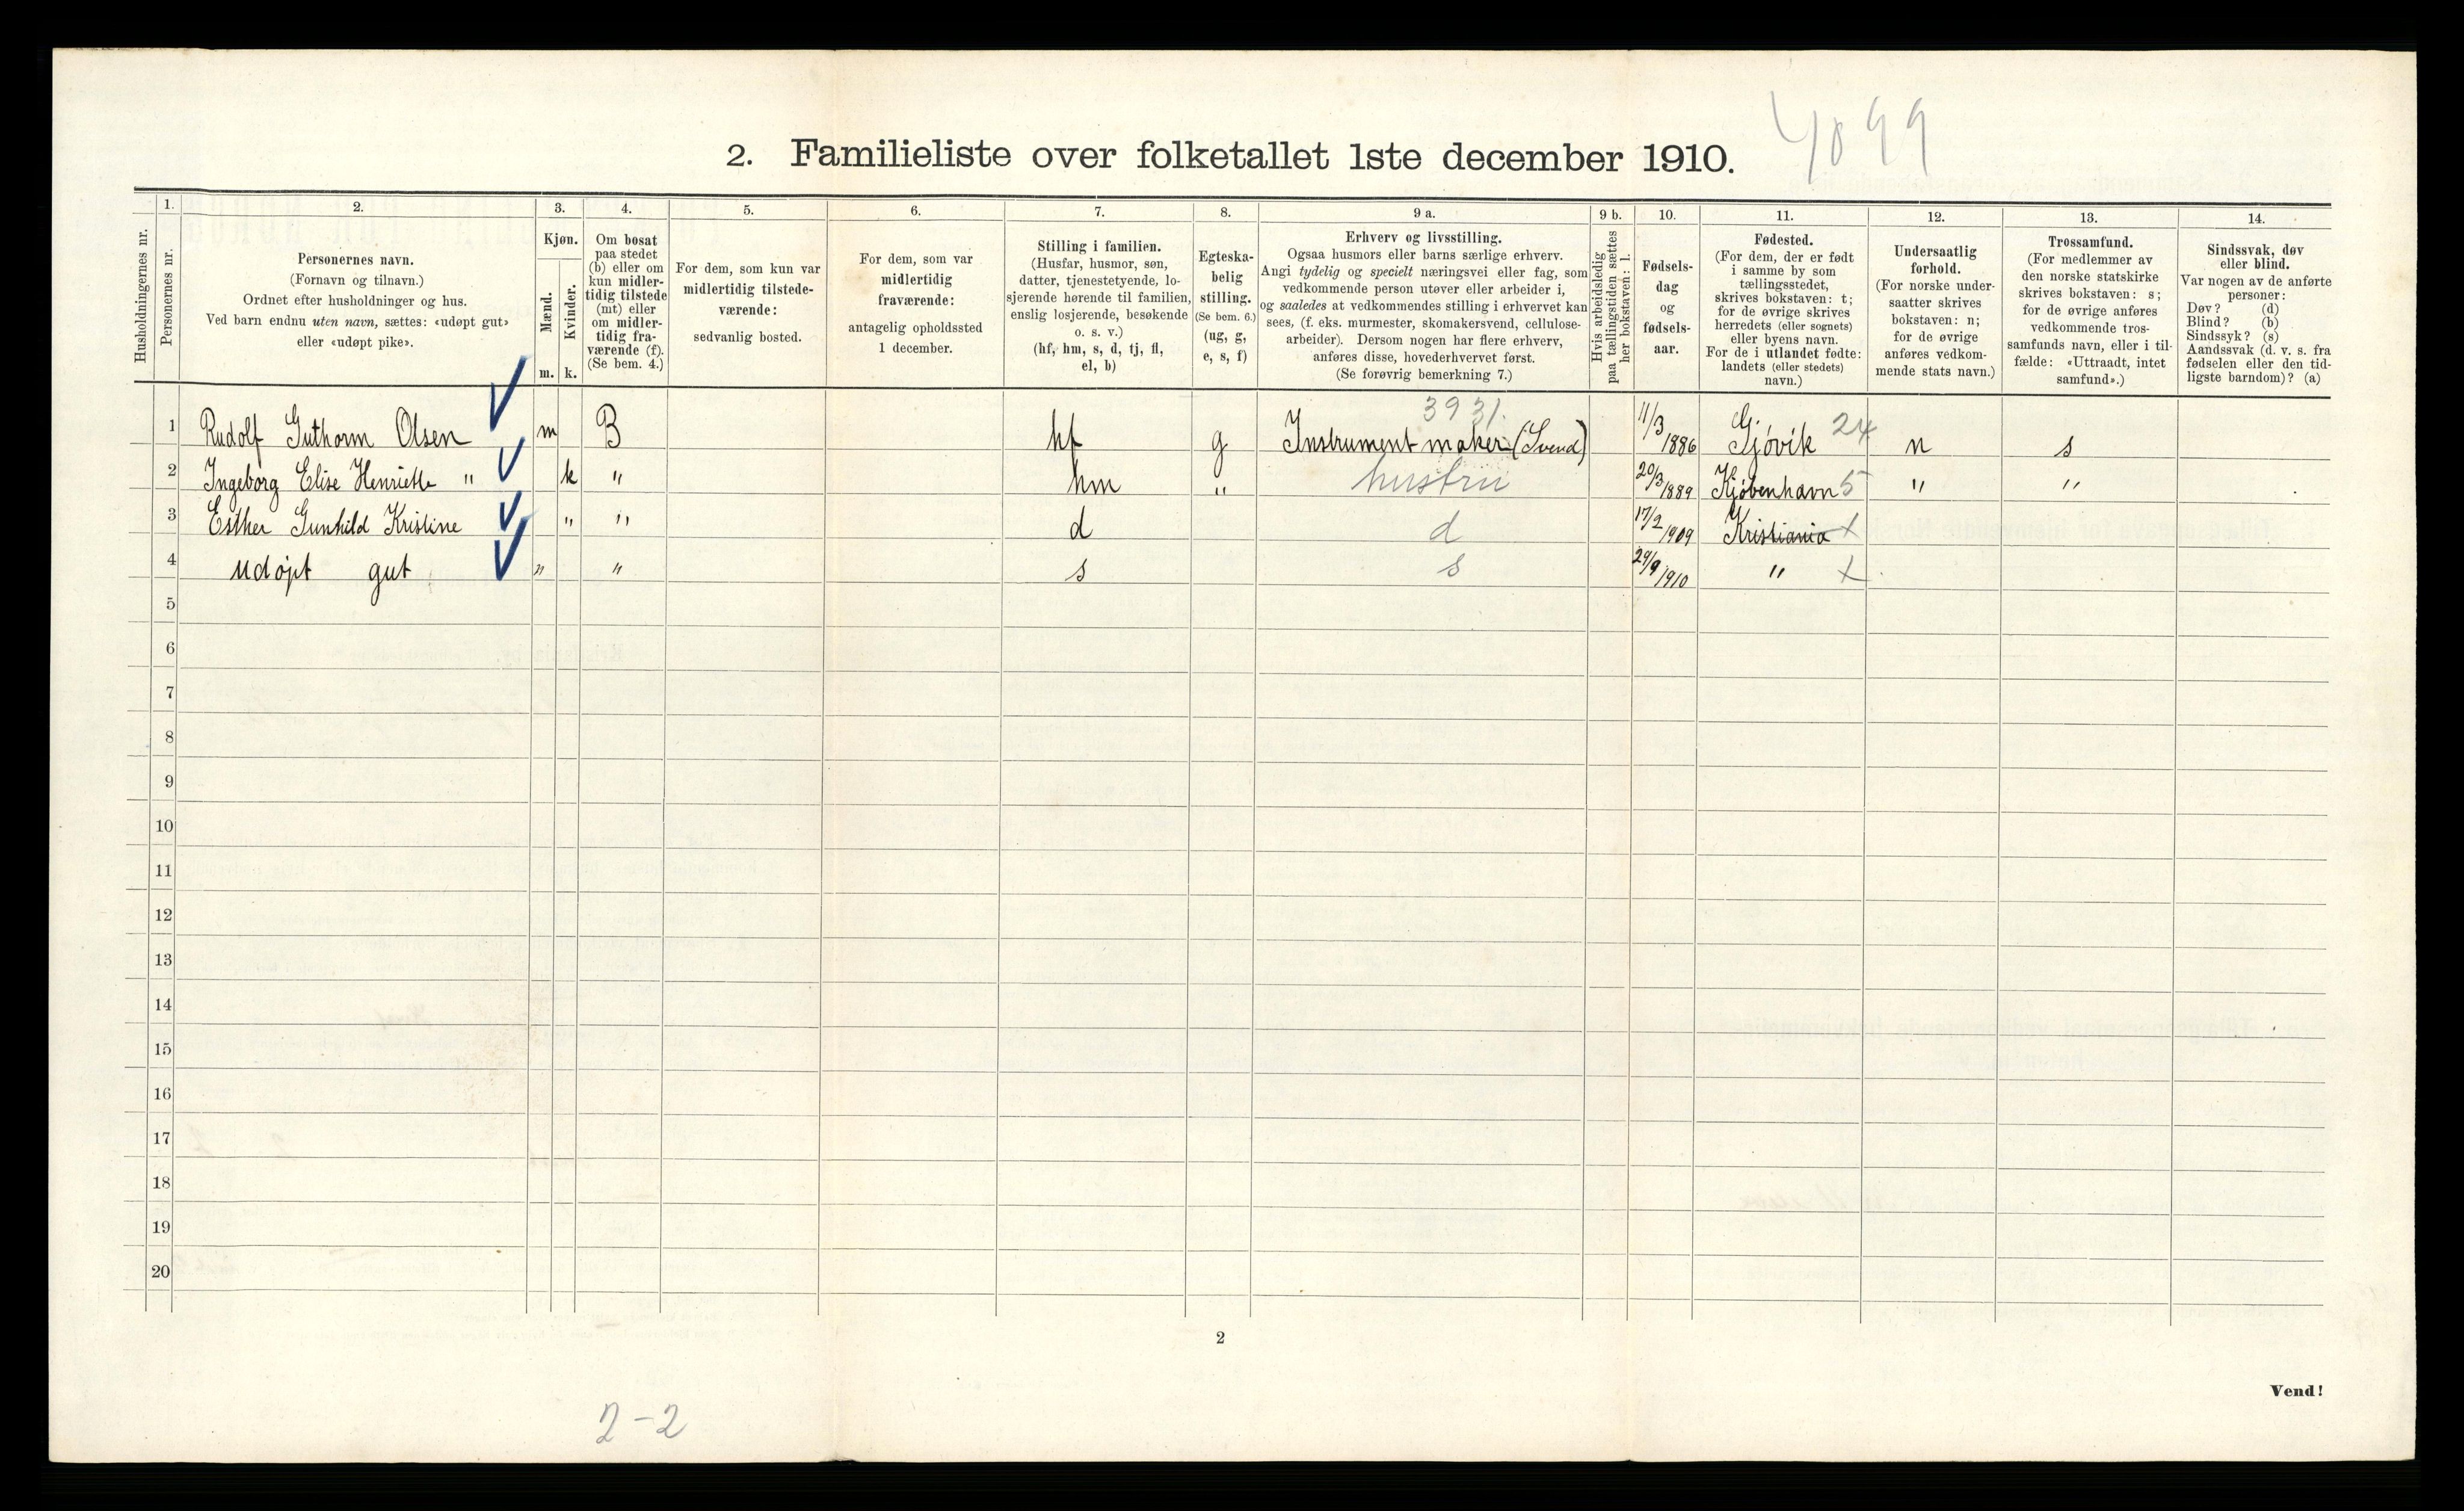 4099
2. Familieliste over folketallet 1ste december 1910.
Husholdningernes nr.
1.
Personernes nr.
2.
Personernes navn.
(Fornavn og tilnavn.)
Ordnet efter husholdninger og hus.
Ved barn endnu uten navn, sættes: «udøpt gut»
eller «udøpt pike».
3.
Kjøn.
Mænd.
Kvinder.
m. k.
4.
Om bosat
paa stedet
(b) eller om
kun midler-
tidig tilstede
(mt) eller
om midler-
tidig fra-
værende (f).
(Se bem. 4.)
5.
For dem, som kun var
midlertidig tilstede-
værende:
sedvanlig bosted.
6.
For dem, som var
midlertidig
fraværende:
antagelig opholdssted
1 december.
7.
Stilling i familien.
(Husfar, husmor, søn,
datter, tjenestetyende, lo-
sjerende hørende til familien,
enslig losjerende, besøkende
o. s. v.)
(hf, hm, s, d, tj, fl,
el, b)
8.
Egteska-
belig
stilling.
(Se bem. 6.)
(ug, g,
e, s, f)
9 a.
Erhverv og livsstilling.
Ogsaa husmors eller barns særlige erhverv.
Angi tydelig og specielt næringsvei eller fag, som
vedkommende person utøver eller arbeider i,
og saaledes at vedkommendes stilling i erhvervet kan
sees, (f. eks. murmester, skomakersvend, cellulose-
arbeider). Dersom nogen har flere erhverv,
anføres disse, hovederhvervet først.
(Se forøvrig bemerkning 7.)
9 b.
Hvis arbeidsledig
paa tællingstiden sættes
her bokstaven: l.
10.
Fødsels-
dag
og
fødsels-
aar.
11.
Fødested.
(For dem, der er født
i samme by som
tællingsstedet,
skrives bokstaven: t;
for de øvrige skrives
herredets (eller sognets)
eller byens navn.
For de i utlandet fødte:
landets (eller stedets)
navn.)
12.
Undersaatlig
forhold.
(For norske under-
saatter skrives
bokstaven: n;
for de øvrige
anføres vedkom-
mende stats navn.)
13.
Trossamfund.
(For medlemmer av
den norske statskirke
skrives bokstaven: s;
for de øvrige anføres
vedkommende tros-
samfunds navn, eller i til-
fælde: «Uttraadt, intet
samfund».)
14.
Sindssvak, døv
eller blind.
Var nogen av de anførte
personer:
Døv? (d)
Blind? (b)
Sindssyk? (s)
Aandssvak (d. v. s. fra
fødselen eller den tid-
ligste barndom)? (a)
3931.
1 Rudolf Guthorm Olsen m B hf g Instrumentmaker (Svend) 11/3 1886 Gjøvik 24 n s
2 Ingeborg Elise Henriette " k " hm " hustru 20/3 1889 Kjøbenhavn 5 " "
3 Esther Gunhild Kristine " " d d 17/2 1909 Kristiania x
4 udøpt gut " " s s 29/9 1910 " x
5
6
7
8
9
10
11
12
13
14
15
16
17
18
19
20
2
Vend!
2-2